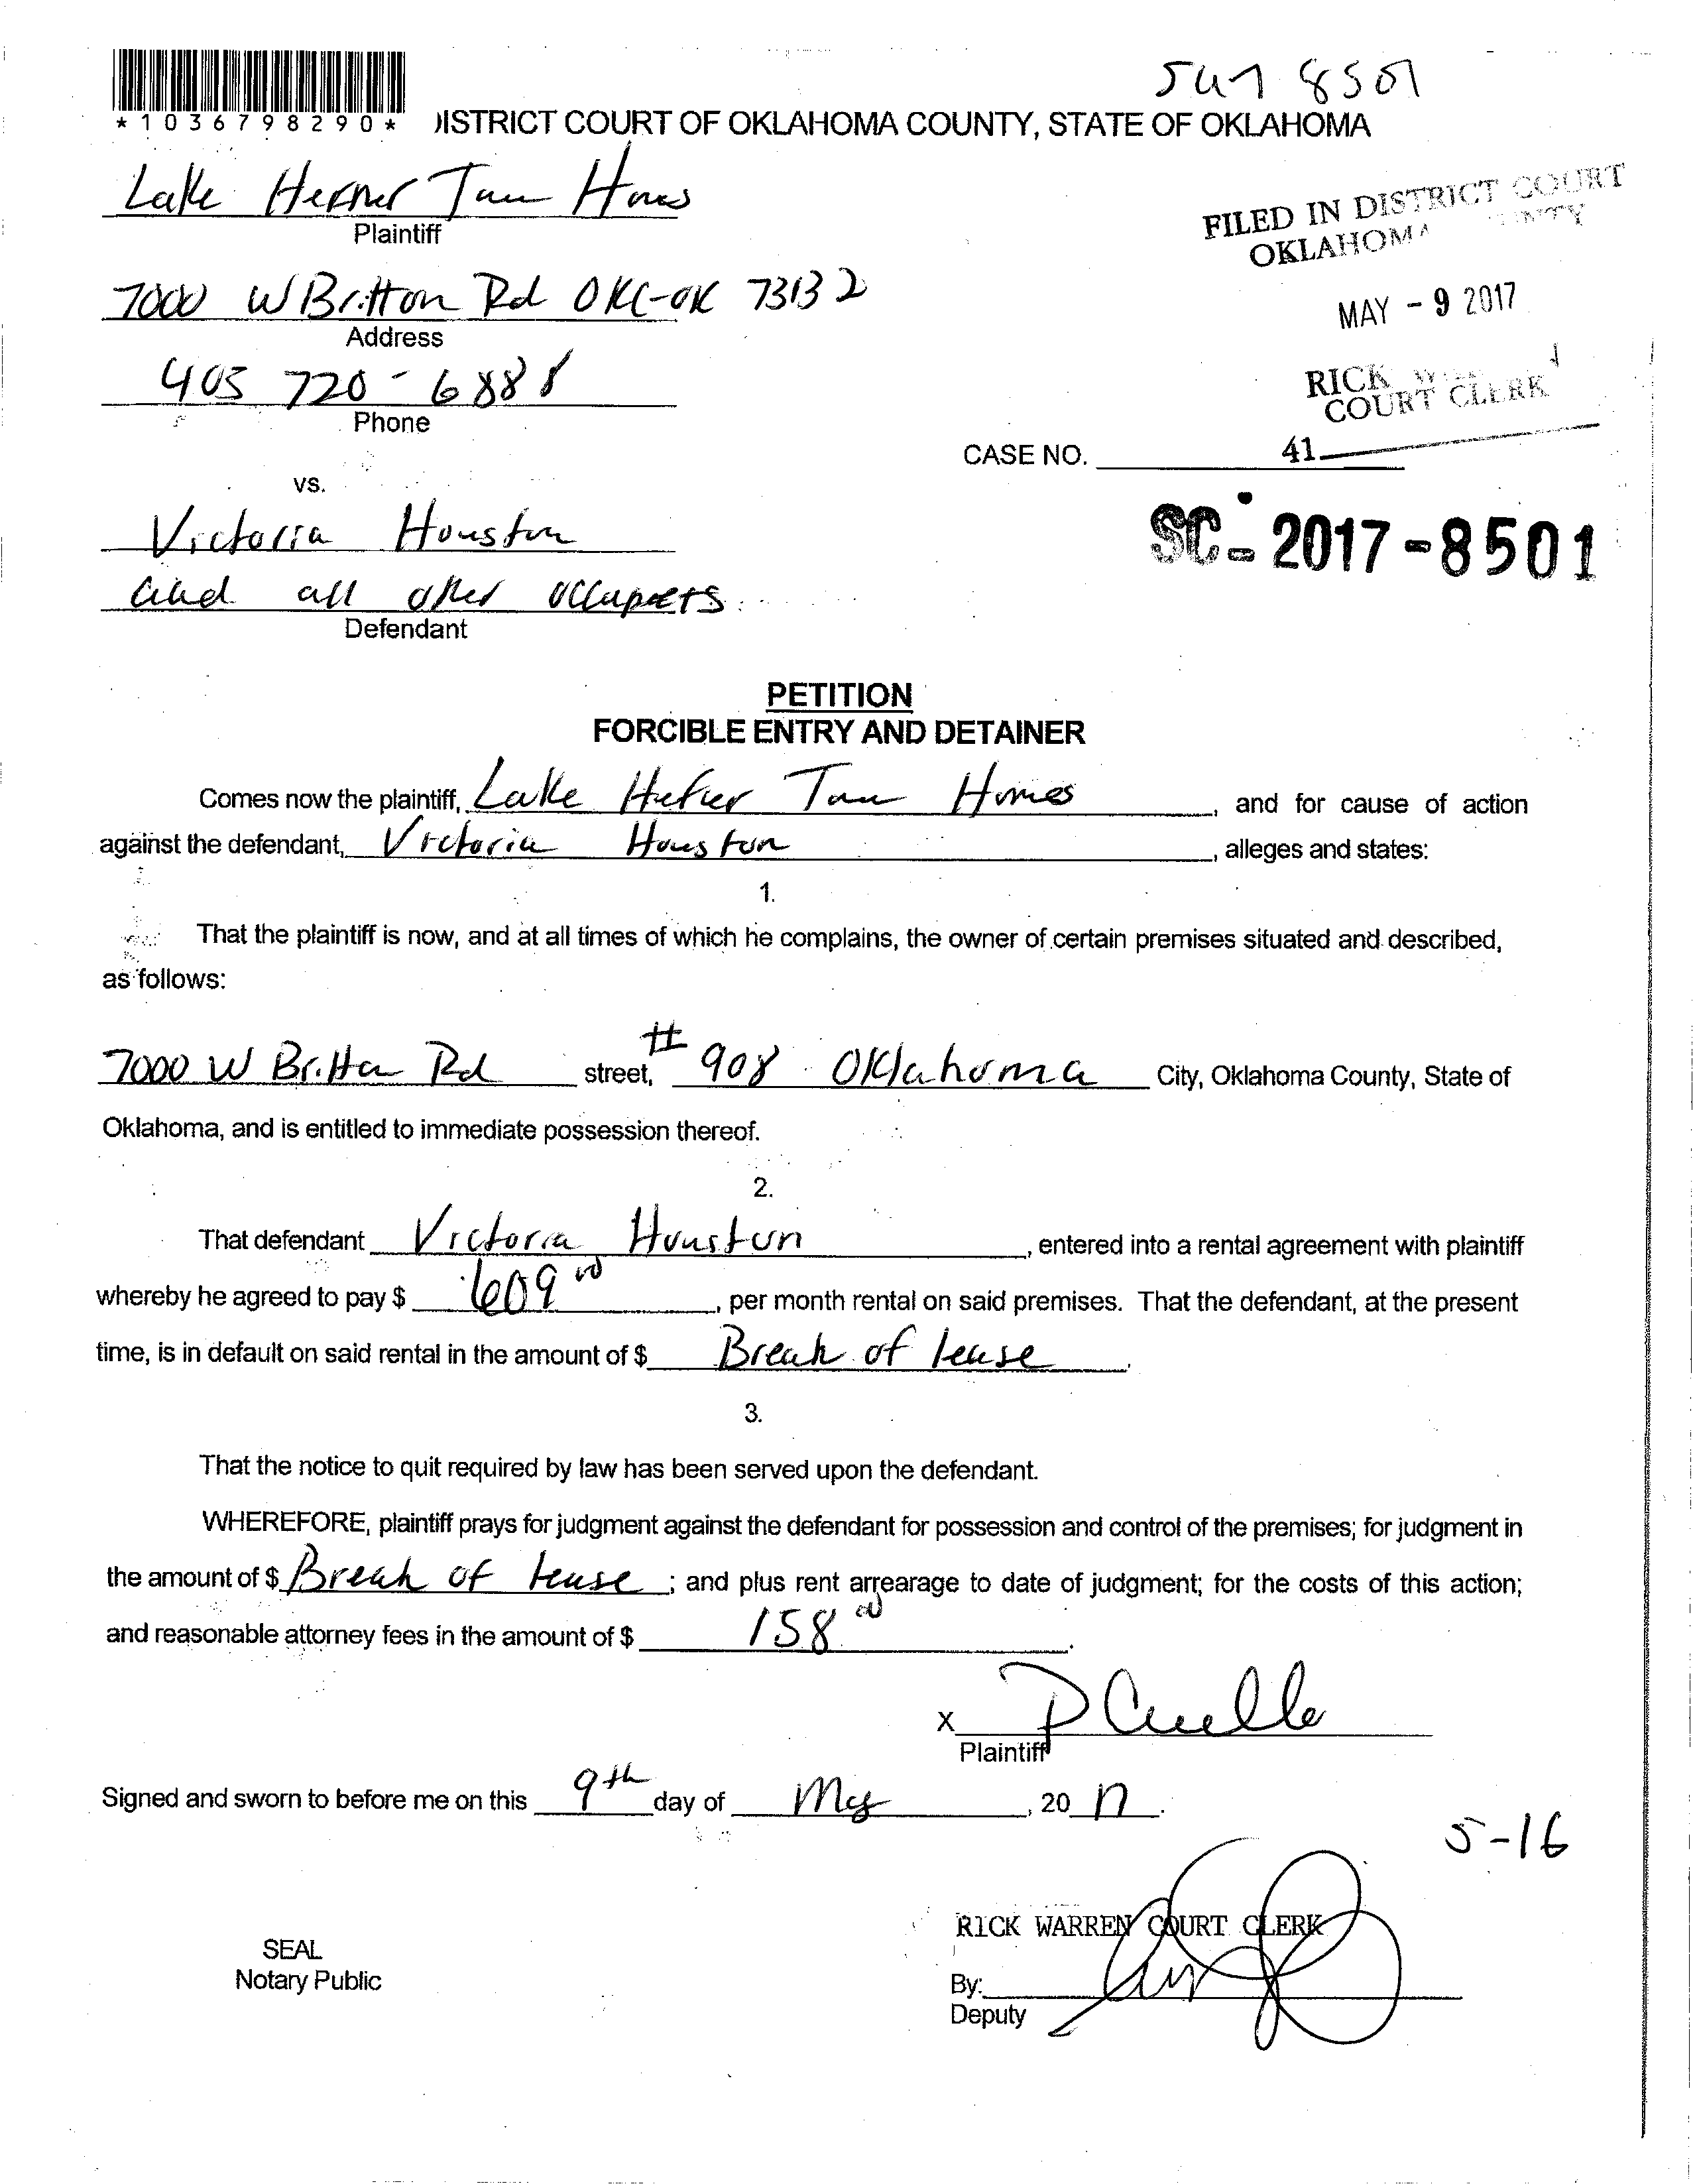 Sun 8501
*1036798290* DISTRICT COURT OF OKLAHOMA COUNTY, STATE OF OKLAHOMA
Lake Hefner Town Homes
Plaintiff
FILED IN DISTRICT COURT
OKLAHOMA
7000 W Britton Rd OKC-OK 73132
Address
MAY - 9 2017
405 720-6888
Phone
RICK
COURT CLERK
CASE NO.
41
vs.
Victoria Houston
SC-2017-8501
and all other occupants
Defendant
PETITION
FORCIBLE ENTRY AND DETAINER
Comes now the plaintiff, Lake Hefner Town Homes, and for cause of action
against the defendant, Victoria Houston, alleges and states:
1.
That the plaintiff is now, and at all times of which he complains, the owner of certain premises situated and described,
as follows:
7000 W Britton Rd street, # 908 Oklahoma City, Oklahoma County, State of
Oklahoma, and is entitled to immediate possession thereof.
2.
That defendant Victoria Houston, entered into a rental agreement with plaintiff
whereby he agreed to pay $ 609 00, per month rental on said premises. That the defendant, at the present
time, is in default on said rental in the amount of $ Break of lease.
3.
That the notice to quit required by law has been served upon the defendant.
WHEREFORE, plaintiff prays for judgment against the defendant for possession and control of the premises; for judgment in
the amount of $ Break of lease; and plus rent arrearage to date of judgment; for the costs of this action;
and reasonable attorney fees in the amount of $ 158 00.
x
Plaintiff
Signed and sworn to before me on this 9th day of May, 20 17.
5-16
RICK WARREN COURT CLERK
SEAL
Notary Public
By:
Deputy